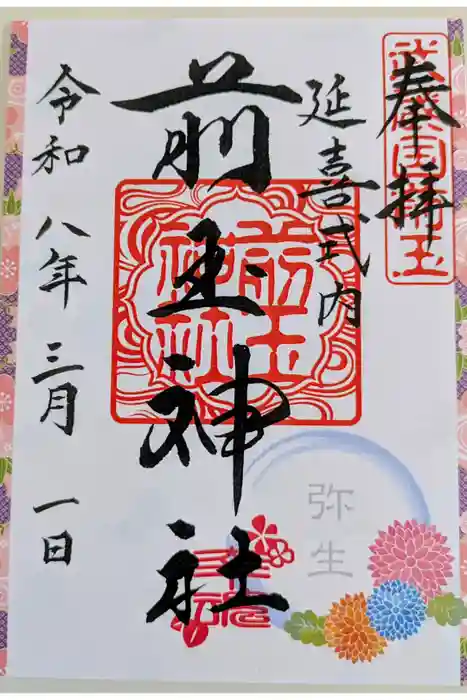 奉拝
武蔵国埼玉
延喜式内
前玉神社
前玉神社
弥生
令和八年三月一日